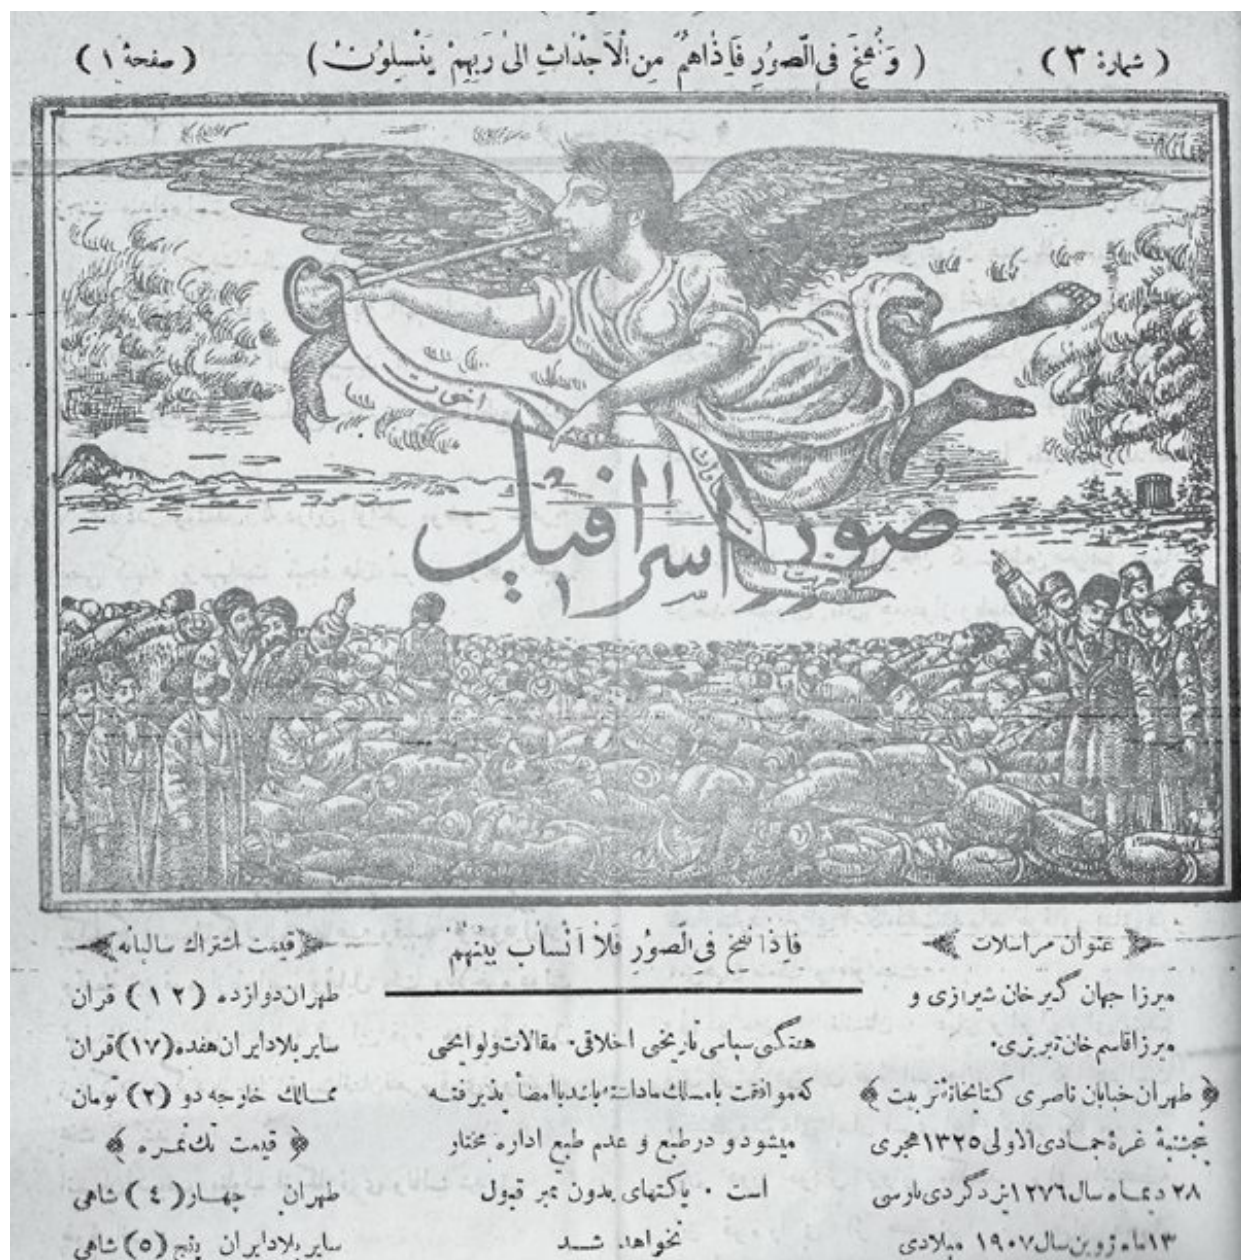 ( شماره ۳ ) ( وَنُفِخَ فِی الصّورِ فَاِذٰاهُم مِنَ الْاَجْدٰاثِ اِلیٰ رَبِهِمْ یَنْسِلُونَ ) ( صفحهٔ ۱ )
اخوت
مساوات
حریت
صور اسرافیل
عنوان مراسلات
میرزا جهان گیر خان شیرازی و
میرزا قاسم خان تبریزی۰
طهران خیابان ناصری کتابخانهٔ تربیت
پنجشنبهٔ غرهٔ جمادی الاولی ۱۳۲۵ هجری
۲۸ دیماه سال ۱۲۷۶ یزدگردی پارسی
۱۳ ماه ژوین سال ۱۹۰۷ میلادی
فَاِذا نُفِخَ فِی الصّورِ فَلاٰ اَنْساب بینهم
هفتگی سیاسی تاریخی اخلاقی۰ مقالات و لوایحی
که موافقت با مسلک ما داشته باشد با امضا پذیرفته
میشود و در طبع و عدم طبع اداره مختار
است ۰ پاکتهای بدون تمبر قبول
نخواهد شد
قیمت اشتراک سالیانه
طهران دوازده (۱۲) قران
سایر بلاد ایران هفده (۱۷) قران
ممالک خارجه دو (۲) تومان
قیمت تک نمره
طهران چهار (۴) شاهی
سایر بلاد ایران پنج (۵) شاهی